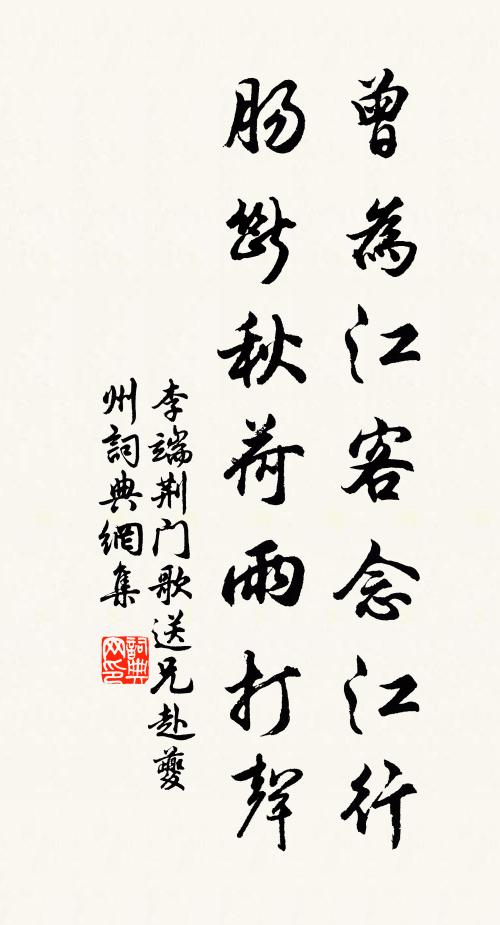 曾為江客念江行
腸斷秋荷雨打聲
李端荆门歌送兄赴夔
州詞典網集
詞典网印